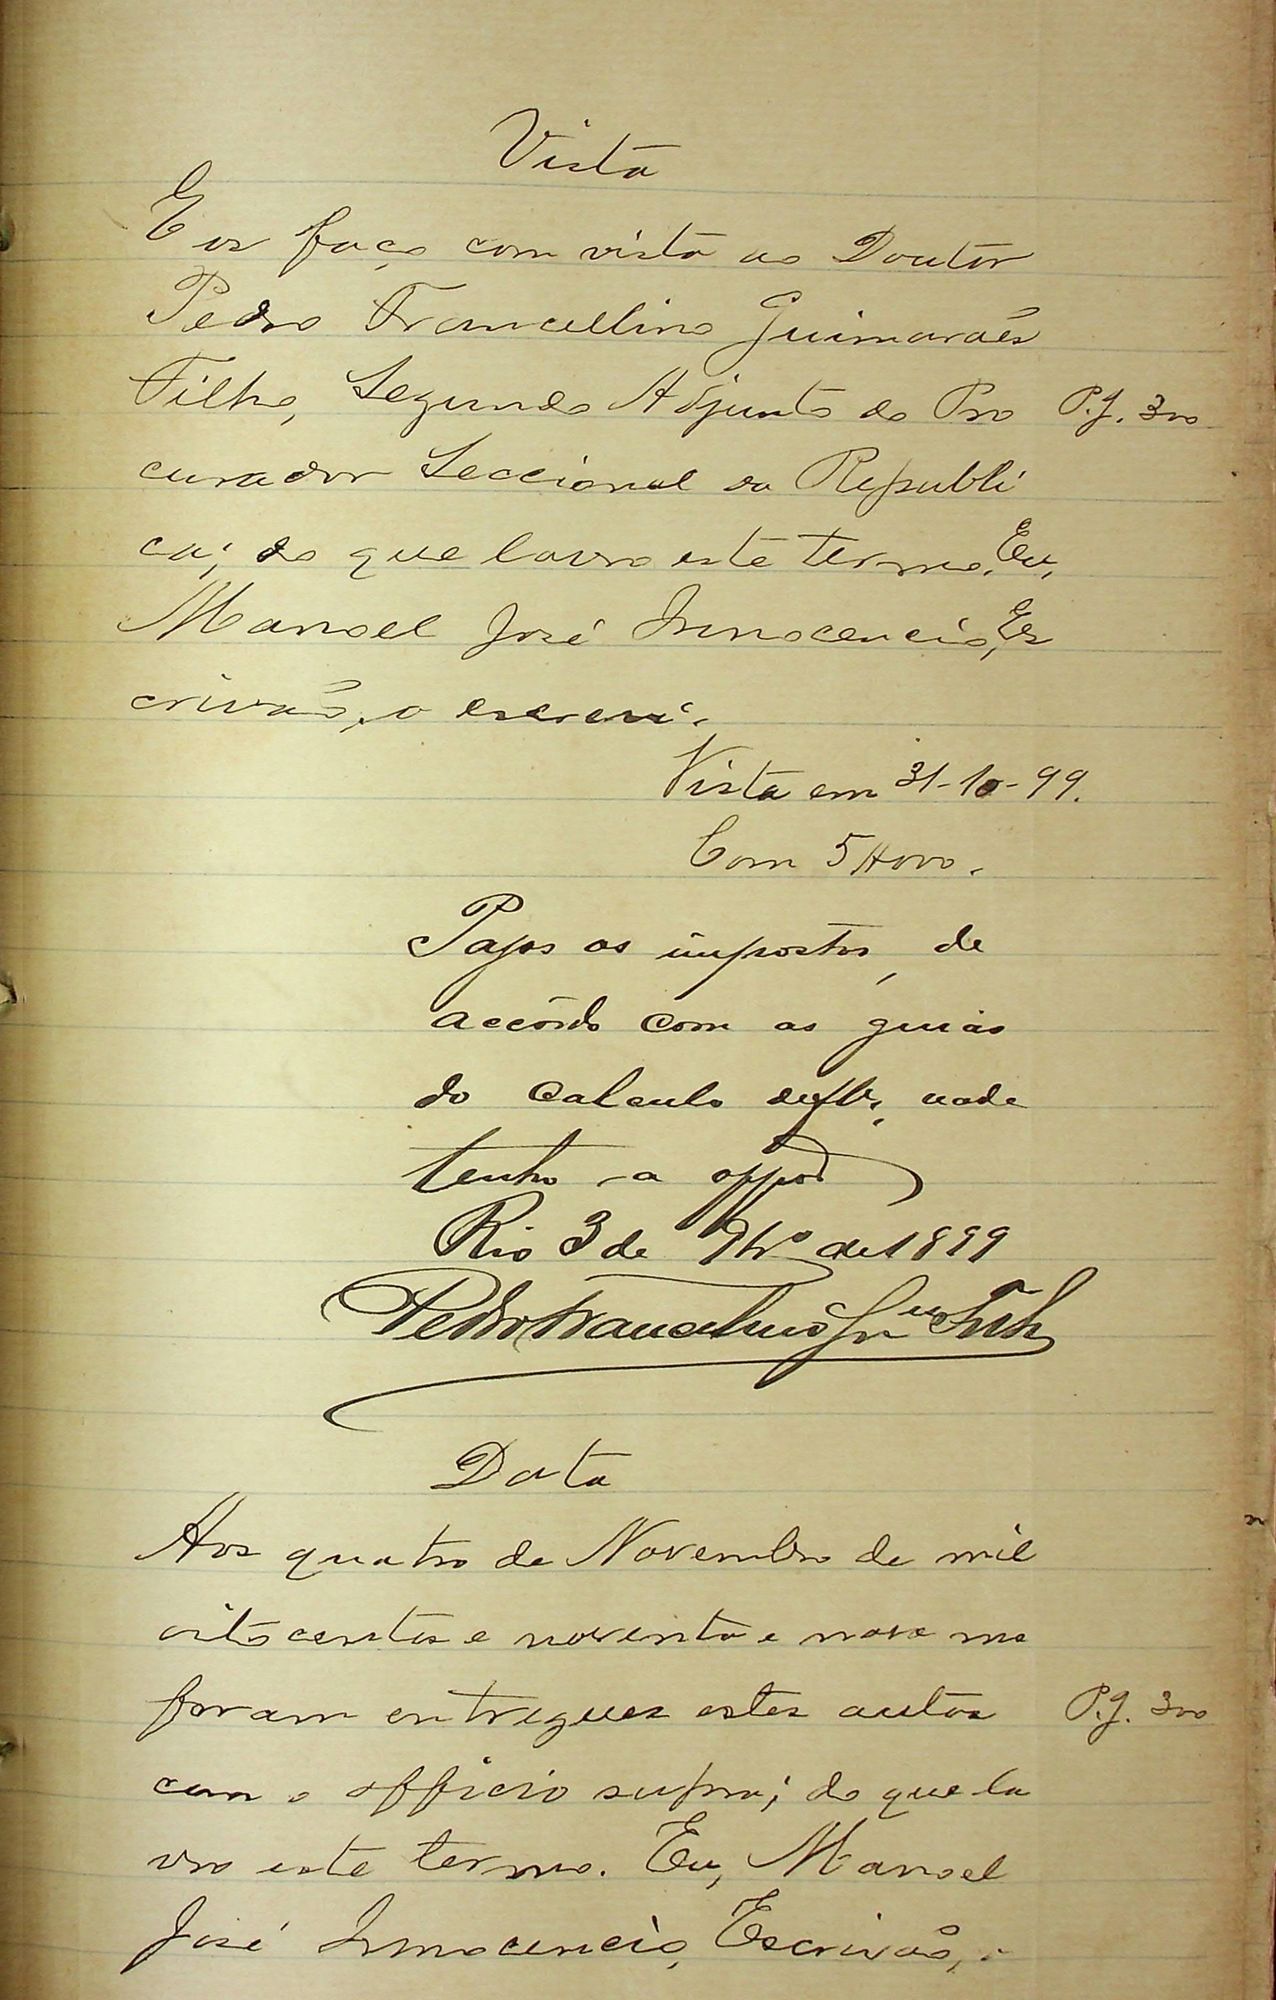 Vista
E os faço com vista ao Doutor
Pedro Francellino Guimarães
Filho, Segundo Adjunto do Pro P.J. 300
curador Seccional da Republi
ca; do que lavro este termo. Eu,
Manoel José Innocencio, Es
crivão, o escrevi.
Vista em 31-10-99.
Com 5
Pagos os impostos, de
accôrdo com as guias
do calculo nada
tenho a oppor
Rio 3 de 9bro de 1899
Pedro Francelino Gu Filho
Data
Aos quatro de Novembro de mil
oitocentos e noventa e nove me
foram entregues estes autos P.J. 300
com o officio supra; do que la
vro este termo. Eu, Manoel
José Innocencio, Escrivão, .